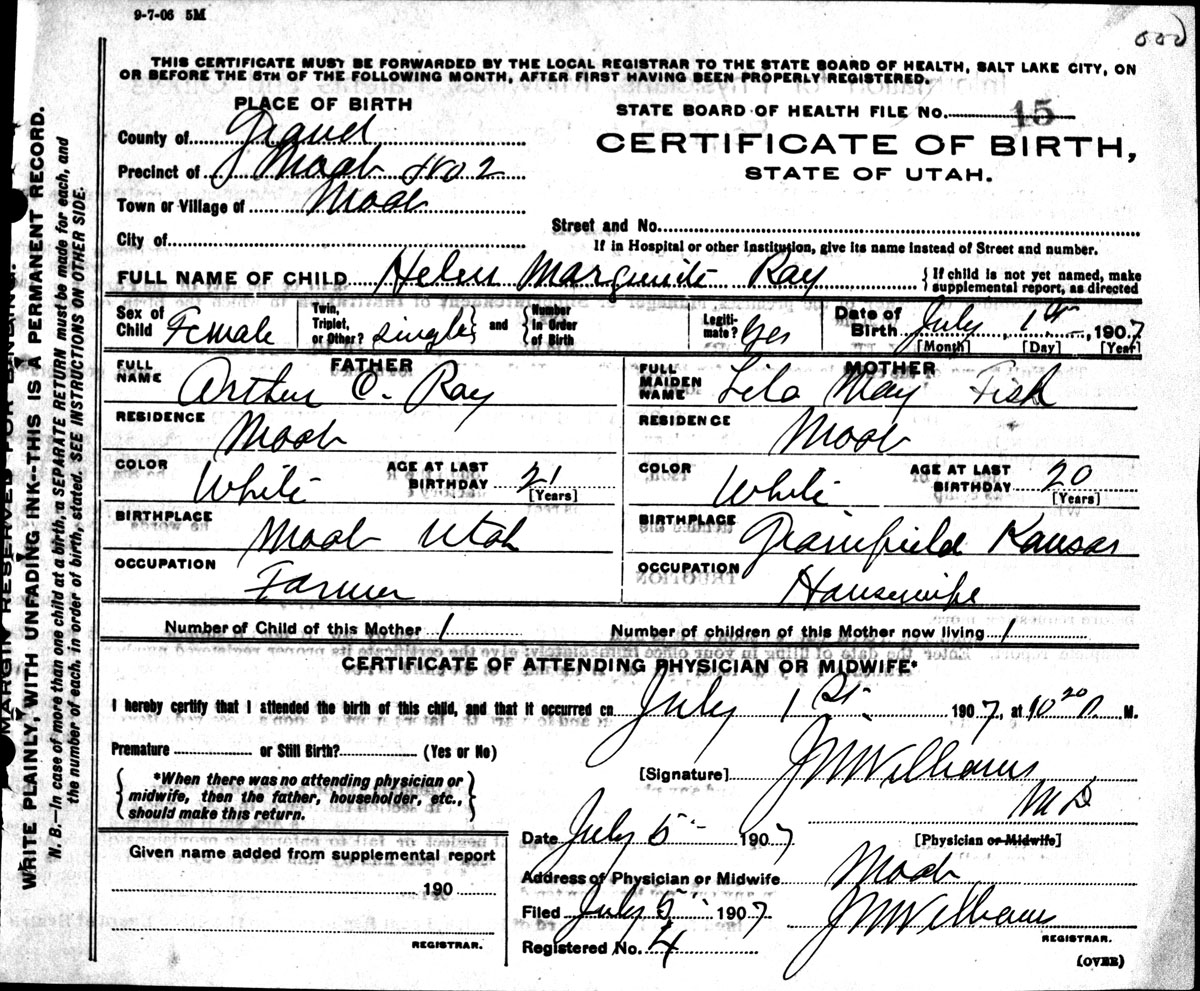 9-7-06 5M
THIS CERTIFICATE MUST BE FORWARDED BY THE LOCAL REGISTRAR TO THE STATE BOARD OF HEALTH, SALT LAKE CITY, ON
OR BEFORE THE 5TH OF THE FOLLOWING MONTH, AFTER FIRST HAVING BEEN PROPERLY REGISTERED.
PLACE OF BIRTH
STATE BOARD OF HEALTH FILE No. 15
County of Grand
CERTIFICATE OF BIRTH,
Precinct of Moab No 2
STATE OF UTAH.
Town or Village of Moab
Street and No.
City of
If in Hospital or other Institution, give its name instead of Street and number.
FULL NAME OF CHILD Helen Marguerite Ray { If child is not yet named, make supplemental report, as directed
Sex of Child Female Twin, Triplet, or Other? single } and { Number in Order of Birth Legiti-mate? Yes Date of Birth July 1st 1907
[Month] [Day] [Year]
FATHER MOTHER
FULL NAME Arthur C. Ray FULL MAIDEN NAME Lila May Fish
RESIDENCE Moab RESIDENCE Moab
COLOR White AGE AT LAST BIRTHDAY 21 [Years] COLOR White AGE AT LAST BIRTHDAY 20 [Years]
BIRTHPLACE Moab Utah BIRTHPLACE Grainfield Kansas
OCCUPATION Farmer OCCUPATION Housewife
Number of Child of this Mother 1 Number of children of this Mother now living 1
CERTIFICATE OF ATTENDING PHYSICIAN OR MIDWIFE*
I hereby certify that I attended the birth of this child, and that it occurred on July 1st. 1907, at 10 20 P. M.
Premature or Still Birth? (Yes or No)
[Signature] J M Williams
M D
{ *When there was no attending physician or midwife, then the father, householder, etc., should make this return. }
Date July 5 1907 [Physician or Midwife]
Given name added from supplemental report
Address of Physician or Midwife Moab
190
Filed July 5 1907 J M Williams
REGISTRAR.
Registered No. 4
REGISTRAR.
(OVER)
MARGIN RESERVED FOR BINDING.
WRITE PLAINLY, WITH UNFADING INK--THIS IS A PERMANENT RECORD.
N. B.—In case of more than one child at a birth, a SEPARATE RETURN must be made for each, and
the number of each, in order of birth, stated. SEE INSTRUCTIONS ON OTHER SIDE.